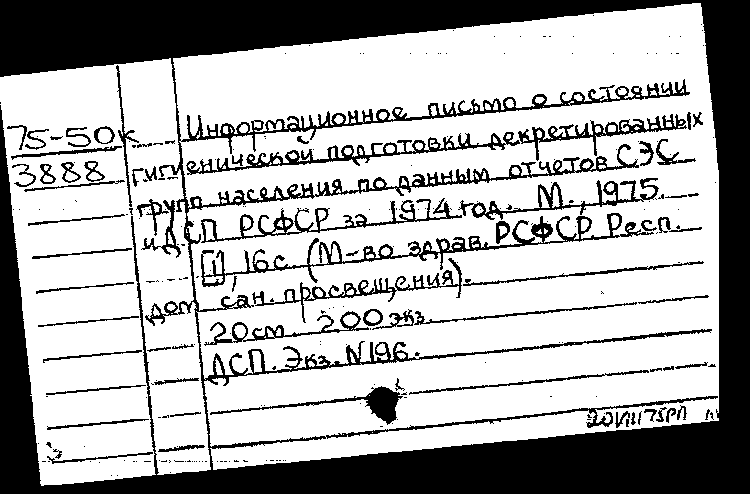 75-50к
3888
Информационное письмо о состоянии
гигиенической подготовки декретированных
групп населения по данным отчетов СЭС
и ДСП РСФСР за 1974 год. М., 1975.
[1], 16 с. (М-во здрав. РСФСР. Респ.
дом сан. просвещения).
20см. 200 экз.
ДСП. Экз. N196.